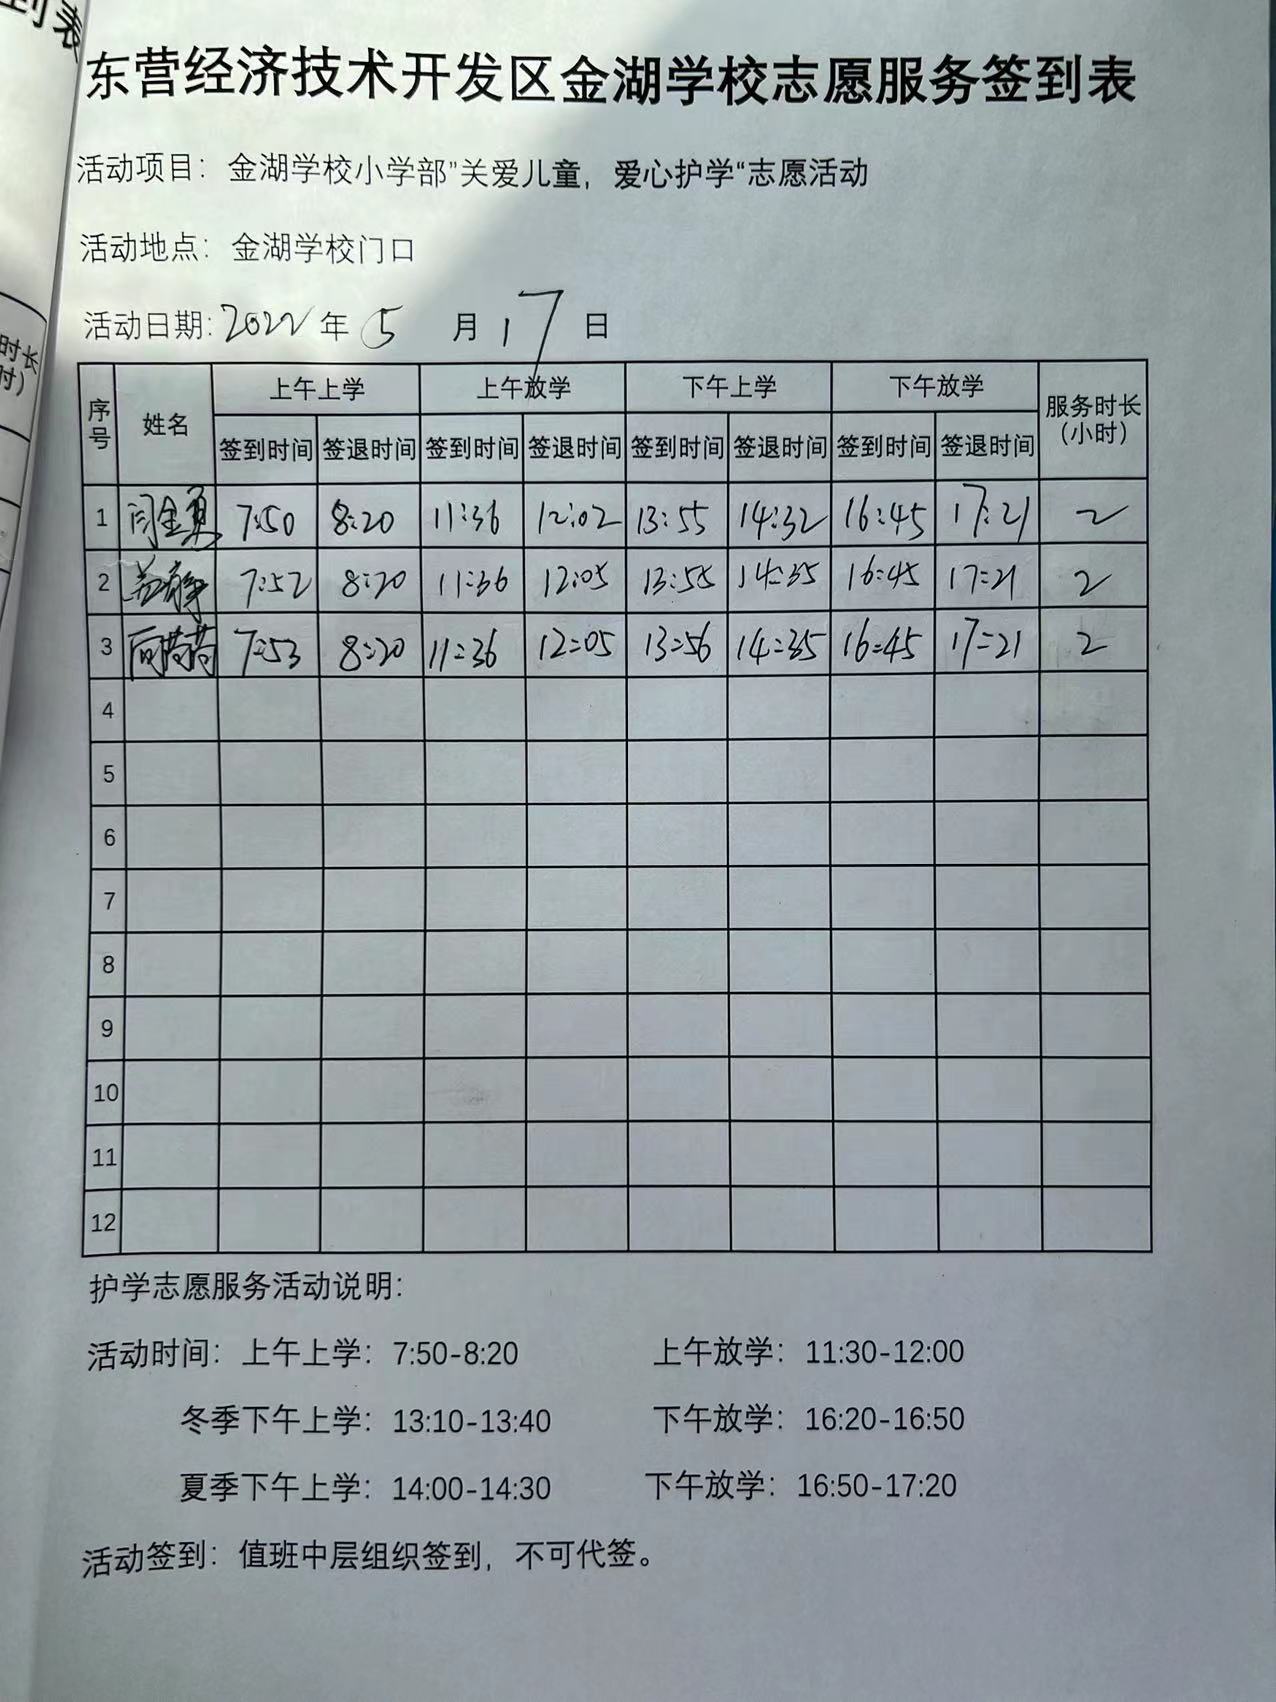 东营经济技术开发区金湖学校志愿服务签到表
活动项目：金湖学校小学部”关爱儿童，爱心护学“志愿活动
活动地点：金湖学校门口
活动日期：2022年5月17日
序号 姓名 上午上学 上午放学 下午上学 下午放学 服务时长（小时）
签到时间 签退时间 签到时间 签退时间 签到时间 签退时间 签到时间 签退时间
1 闫金勇 7:50 8:20 11:36 12:02 13:55 14:32 16:45 17:21 2
2 7:52 8:20 11:36 12:05 13:55 14:35 16:45 17:21 2
3 7:53 8:20 11:36 12:05 13:56 14:35 16:45 17:21 2
4
5
6
7
8
9
10
11
12
护学志愿服务活动说明：
活动时间：上午上学：7:50-8:20 上午放学：11:30-12:00
冬季下午上学：13:10-13:40 下午放学：16:20-16:50
夏季下午上学：14:00-14:30 下午放学：16:50-17:20
活动签到：值班中层组织签到，不可代签。